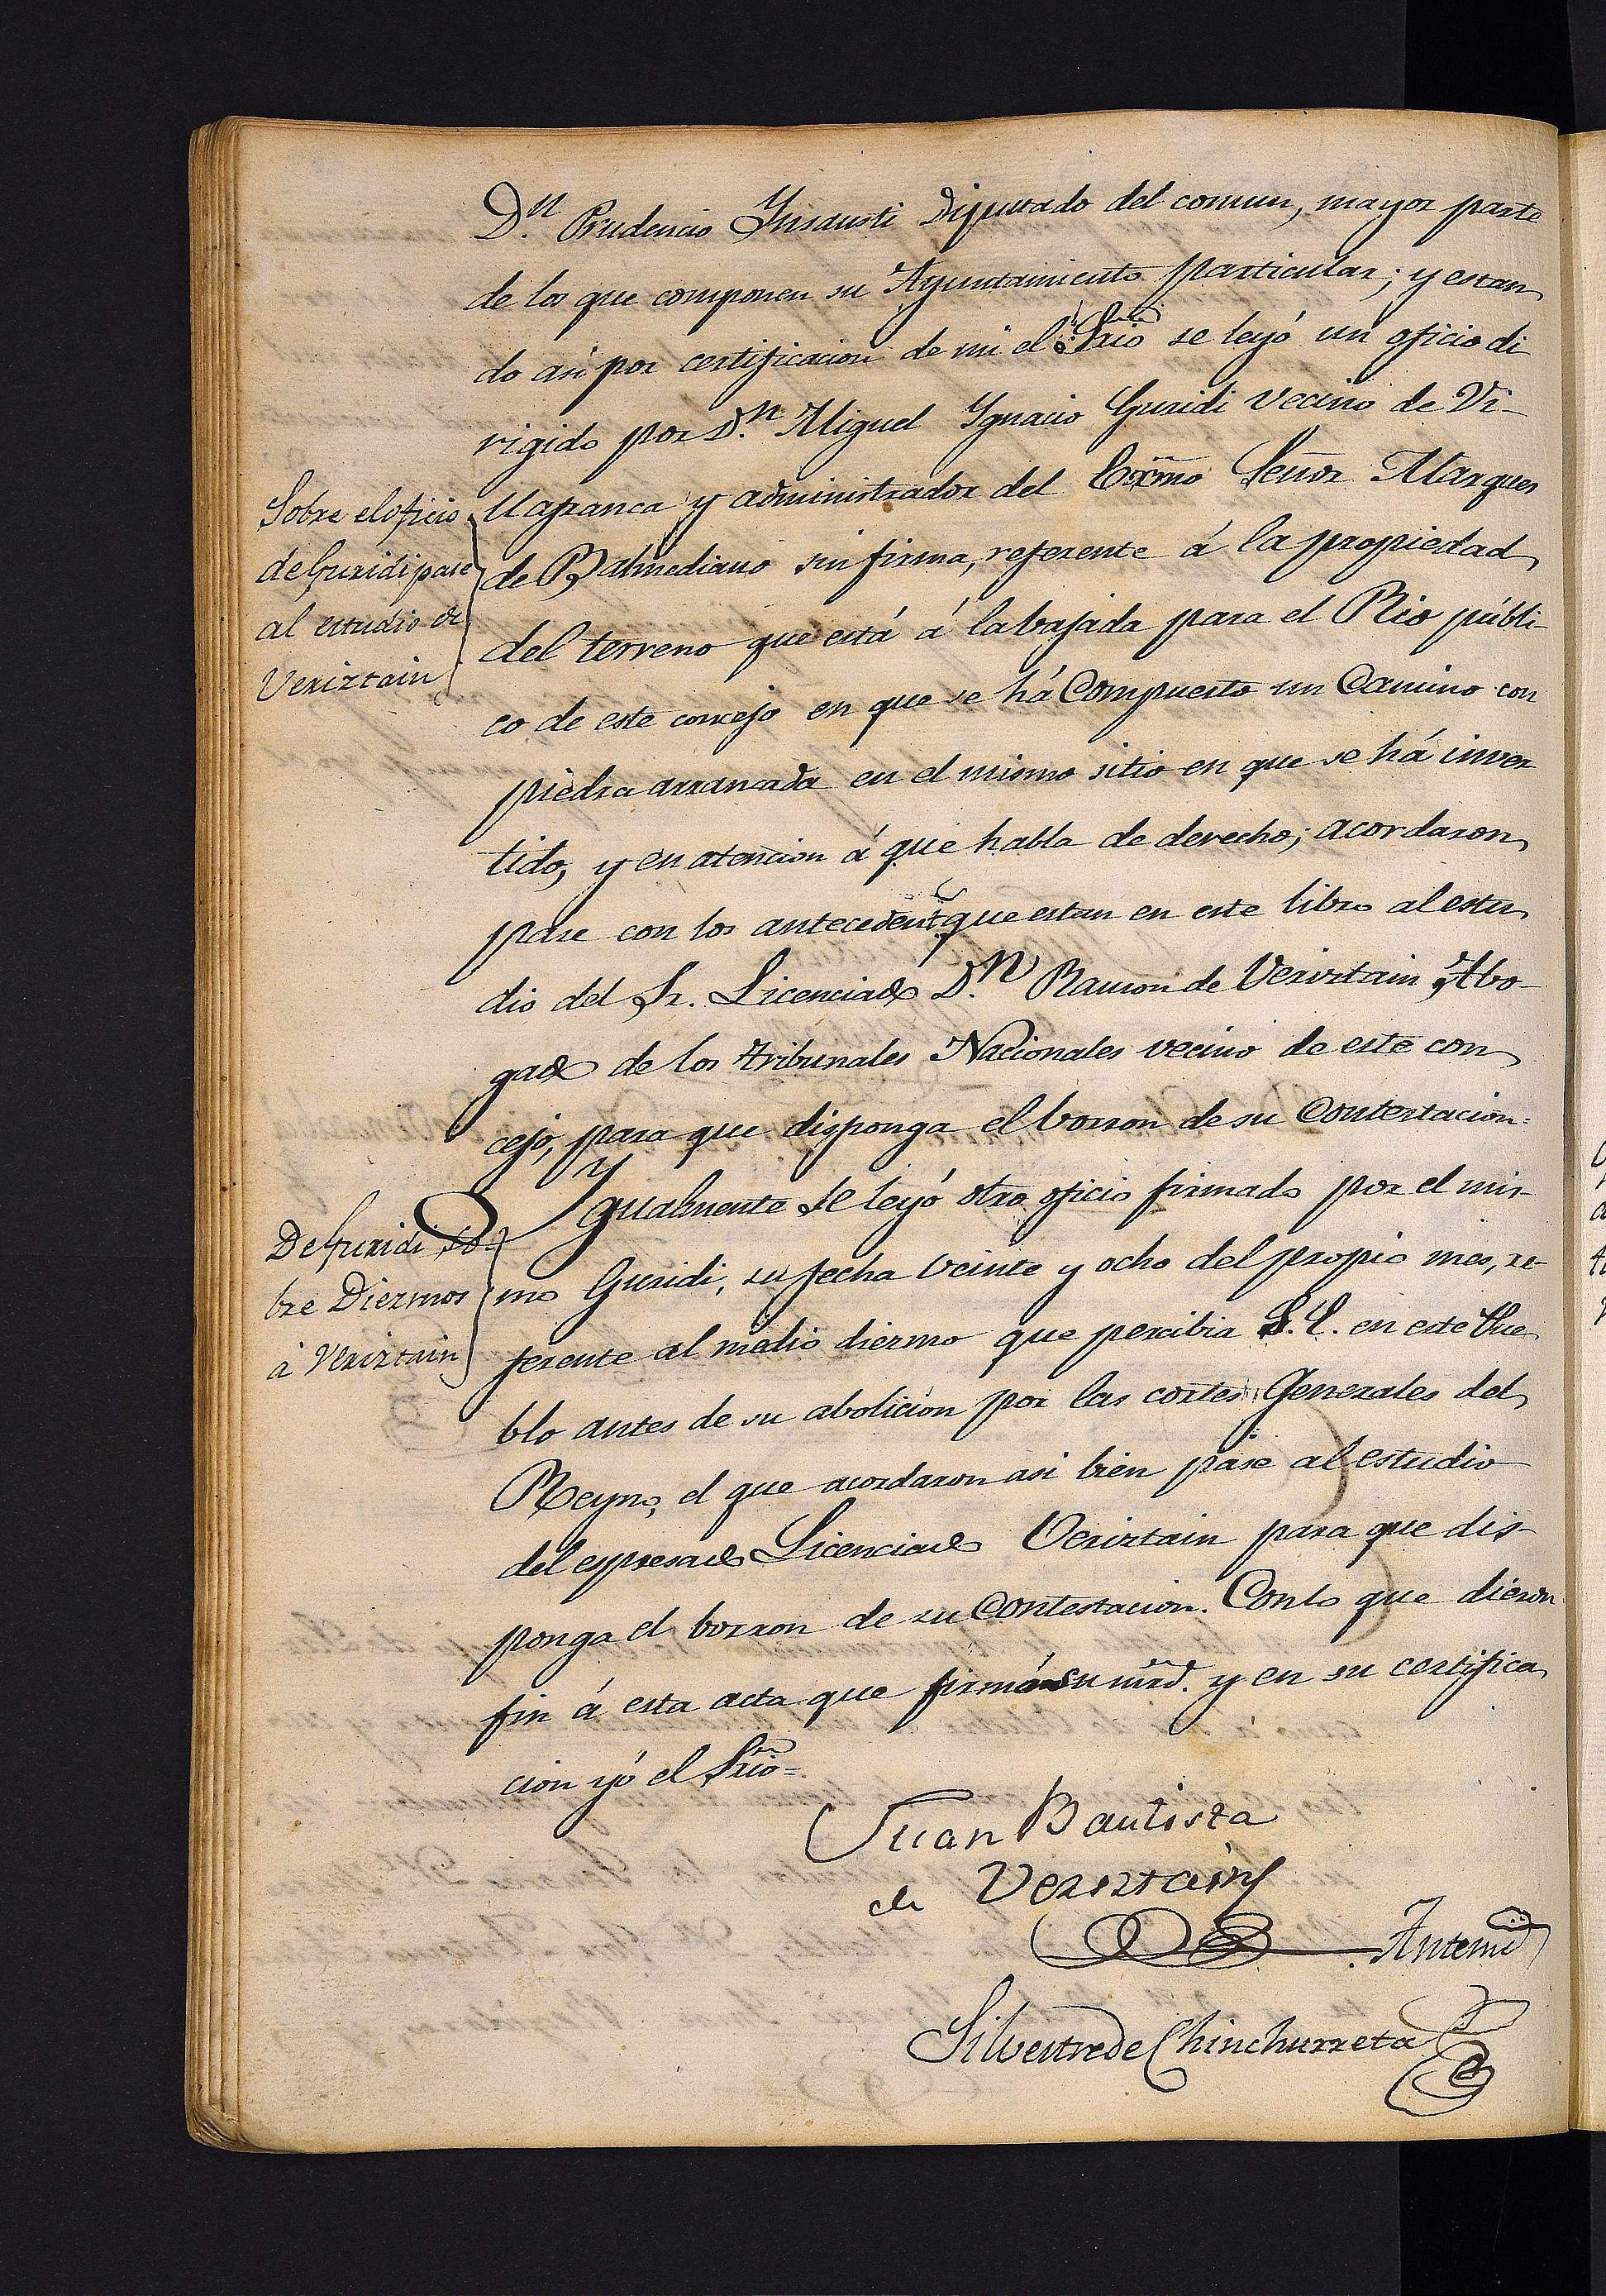 Dn. Prudencio Ynsausti Diputado del comun, mayor parte
de los que componen su Ayuntamiento particular; y estan
do asi por certificacion de mi el Srio se leyó un oficio di
rigido por Dn. Miguel Ygnacio Guridi vecino de Vi-
Sobre el oficio
de Guridi pase
al estudio de
Veriztain
llafranca y administrador del Exmo Señor Marques
de Balmediano sin firma, referente á la propiedad
del terreno que está á la bajada para el Rio públi-
co de este concejo en que se há Compuesto un Camino con
piedra arrancada en el mismo sitio en que se há inver
tido, y en atencion á que habla de derecho; acordaron
pase con los antecedent.s que estan en este libro al estu
dio del Sr. Licenciado Dn. Ramon de Veriztain Abo-
gado de los tribunales Nacionales vecino de este con
cejo, para que disponga el borron de su Contestacion=
Ygualmente se leyó otro oficio firmado por el mis-
De Guridi so-
bre Diezmos
à Veriztain
mo Guridi, su fecha veinte y ocho del propio mes, re-
ferente al medio diezmo que percibia S.E. en este Pue
blo antes de su abolición por las cortes Generales del
Reyno, el que acordaron asi bien pase al estudio
del espresado Licenciado Veriztain para que dis-
ponga el borron de su Contestacion. Con lo que dieron
fin á esta acta que firmó su mrd. y en su certifica
cion yó el Srio=
Juan Bautista
de Veriztain
Antemi
Silvestre de Chinchurreta